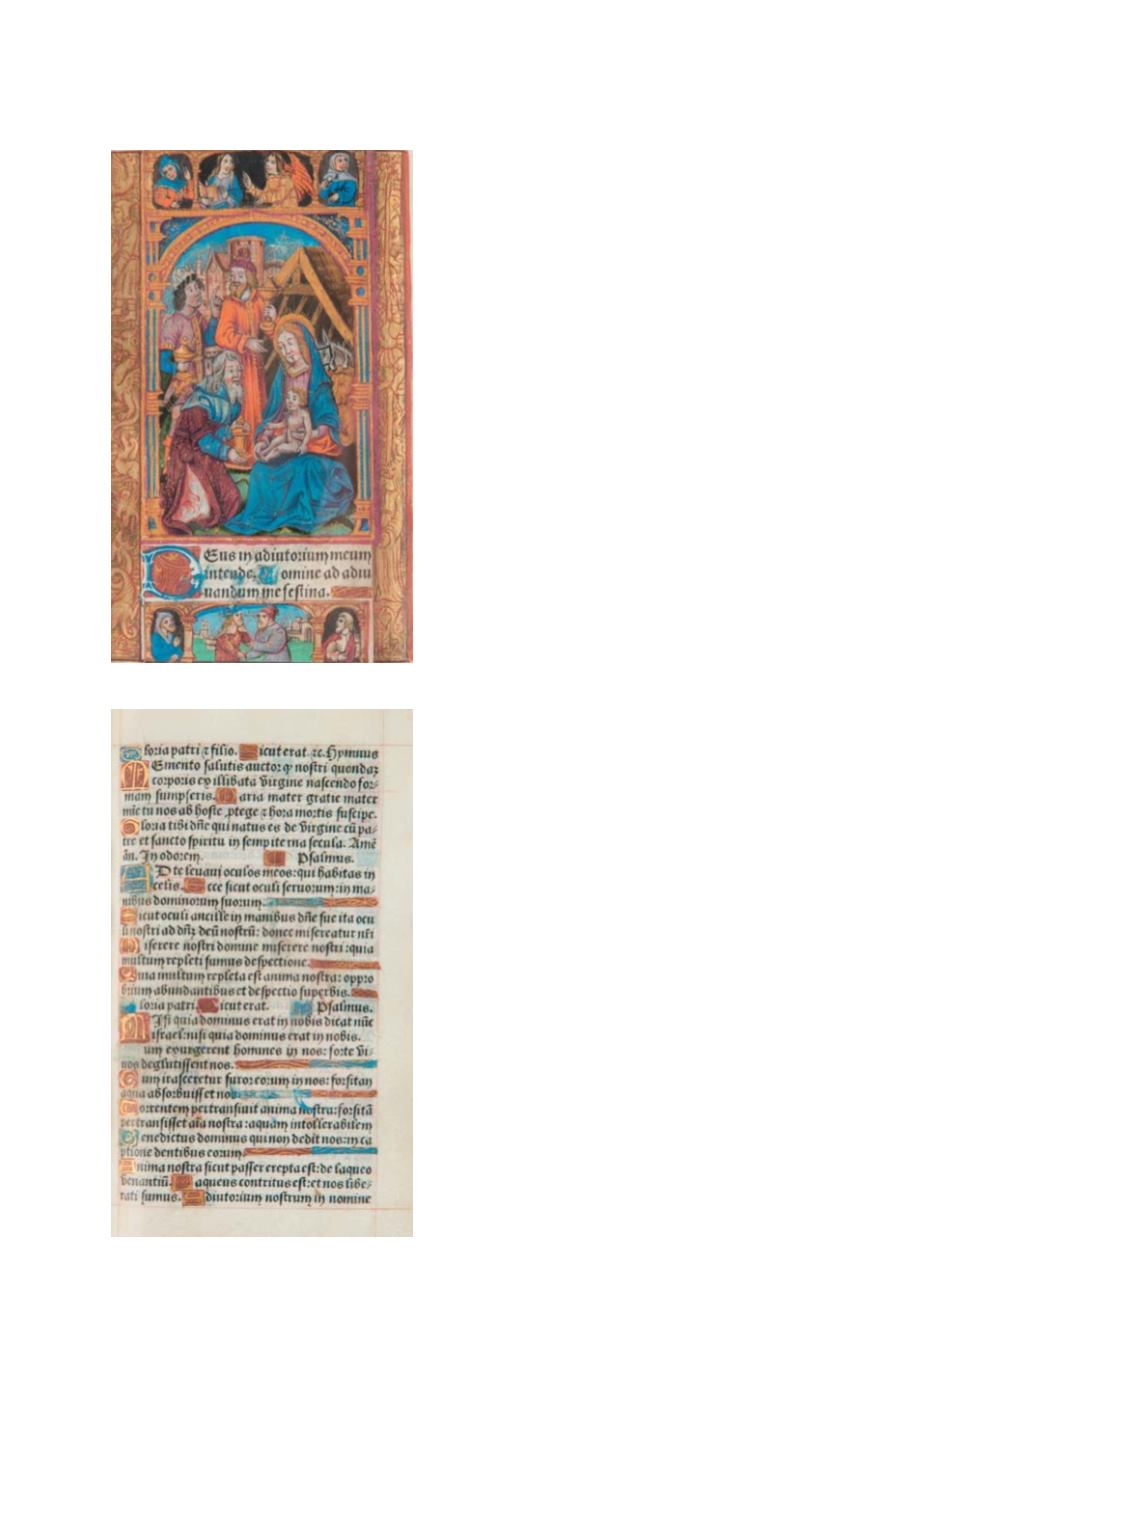 Eus in adiutorium meum
intende. Domine ad adiu
uandum me festina.
Gloria patri ⁊ filio. Sicut erat ⁊c. Hymnus
MEmento salutis auctor q̄ nostri quondaꝫ
corporis ex illibata virgine nascendo for⸗
mam sumpseris. Maria mater gratie mater
mīe tu nos ab hoste ꝓtege ⁊ hora mortis suscipe.
Gloria tibi dn̄e qui natus es de virgine cū pa⸗
tre et sancto spiritu in sempiterna secula. Amē
añ. In odorem. Psalmus.
AD te leuaui oculos meos: qui habitas in
celis. Ecce sicut oculi seruorum: in ma⸗
nibus dominorum suorum.
Sicut oculi ancille in manibus dn̄e sue ita ocu
li nostri ad dn̄ꝫ deū nostrū: donec misereatur nr̄i
Miserere nostri domine miserere nostri: quia
multum repleti sumus despectione.
Quia multum repleta est anima nostra: oppro
brium abundantibus et despectio superbis.
Gloria patri. Sicut erat. Psalmus.
NIsi quia dominus erat in nobis dicat nūc
israel: nisi quia dominus erat in nobis.
um exurgerent homines in nos: forte vi⸗
uos deglutissent nos.
Cum irasceretur furor eorum in nos: forsitan
aqua absorbuisset nos
Torrentem pertransiuit anima nostra: forsitā
pertransisset aīa nostra: aquam intollerabilem
Benedictus dominus qui non dedit nos: in ca
ptione dentibus eorum.
Anima nostra sicut passer erepta est: de laqueo
venantiū. Laqueus contritus est: et nos libe⸗
rati sumus. Adiutorium nostrum in nomine